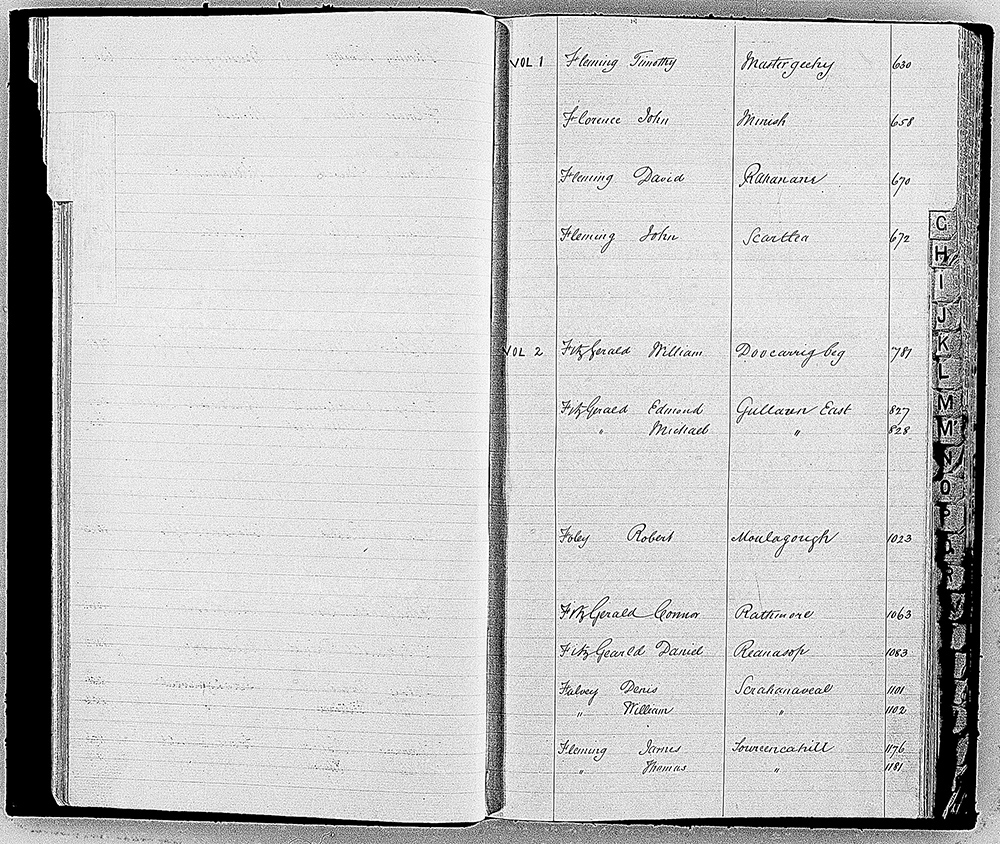 VOL 1 Fleming Timothy Mastergeehy 630
Florence John Minish 658
Fleming David Rahanane 670
Fleming John Scartlea 672
VOL 2 FitzGerald William Doocarrig beg 781
FitzGerald Edmond Gullaun East 827
" Michael " 828
Foley Robert Moulagough 1023
FitzGerald Connor Rathmore 1063
FitzGearld Daniel Reanasop 1083
Falvey Denis Scrahanaveal 1101
" William " 1102
Fleming James Toureencahill 1176
" Thomas " 1181
G
H
I
J
K
L
M
M
N
O
P
R